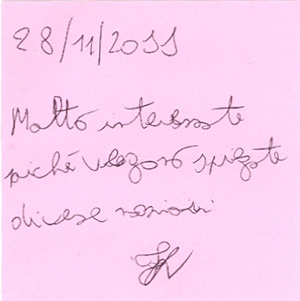 28/11/2011
Molto interessante
poiché vengono spiegate
diverse nozioni